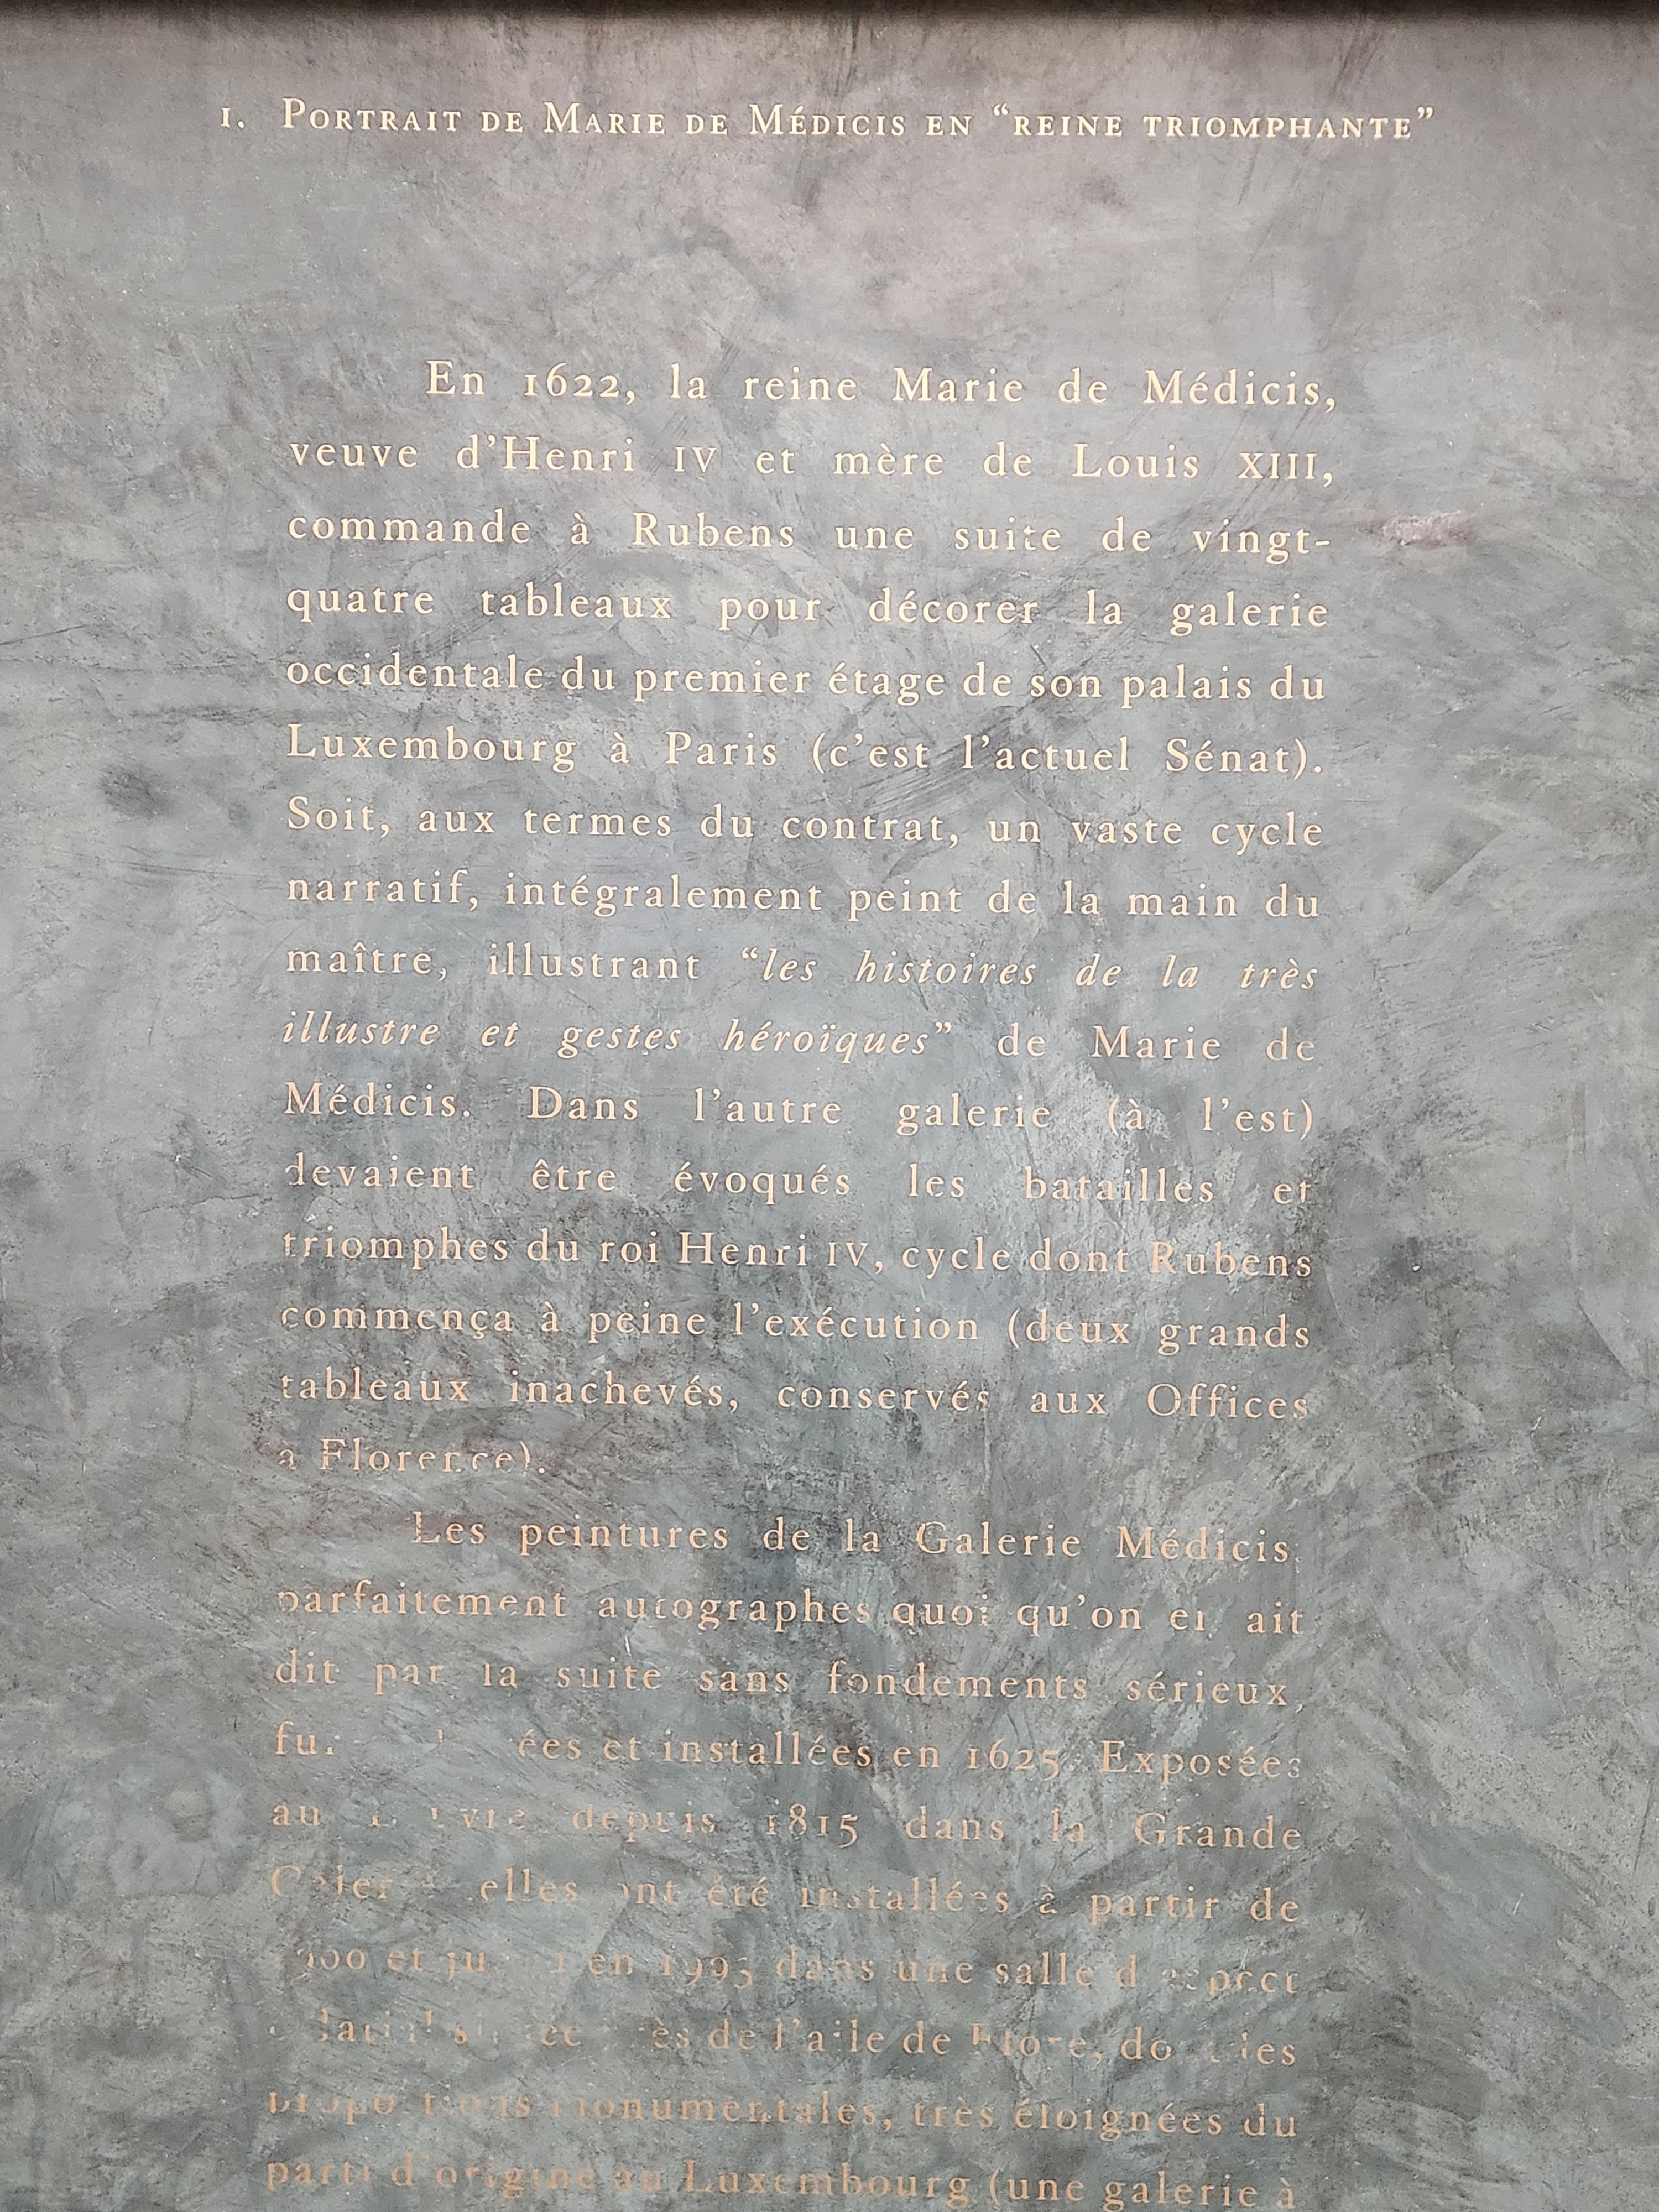 1. Portrait de Marie de Médicis en “reine triomphante”
En 1622, la reine Marie de Médicis,
veuve d’Henri IV et mère de Louis XIII,
commande à Rubens une suite de vingt-
quatre tableaux pour décorer la galerie
occidentale du premier étage de son palais du
Luxembourg à Paris (c’est l’actuel Sénat).
Soit, aux termes du contrat, un vaste cycle
narratif, intégralement peint de la main du
maître, illustrant “les histoires de la très
illustre et gestes héroïques” de Marie de
Médicis. Dans l’autre galerie (à l’est)
devaient être évoqués les batailles et
triomphes du roi Henri IV, cycle dont Rubens
commença à peine l’exécution (deux grands
tableaux inachevés, conservés aux Offices
à Florence).
Les peintures de la Galerie Médicis,
parfaitement autographes quoi qu’on en ait
dit par la suite sans fondements sérieux,
et installées en 1625. Exposées
au depuis 1815 dans la Grande
elles ont été installées à partir de
et en 1993 dans une salle
de l’aile de Flore, les
proportions monumentales, très éloignées du
parti d’origine au Luxembourg (une galerie à